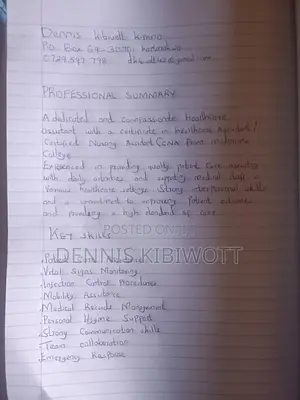 Dennis kibiwott
P.O. Box 64-30
PROFESSIONAL SUMMARY
A dedicated and compassionate healthcare
assistant with a certificate in healthcare Assistant /
Certified Nursing Assistant CCNA from
College
Experienced in providing quality patient care assisting
with daily activities and supporting medical staff in
Various healthcare settings. Strong interpersonal skills
and a commitment to improving Patient outcomes
and providing a high standard of care
POSTED ON
KEY SKILLS
DENNIS KIBIWOTT
Patient
Vital Signs Monitoring
Infection Control Procedures
Mobility Assistance
Medical Records Management
Personal Hygiene Support
Strong Communication skills
Team collaboration
Emergency Response